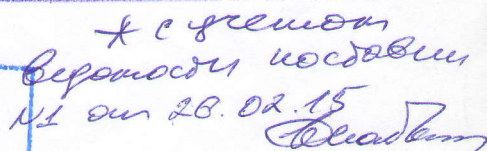 * с учетом
ведомости поставки
№1 от 26.02.15